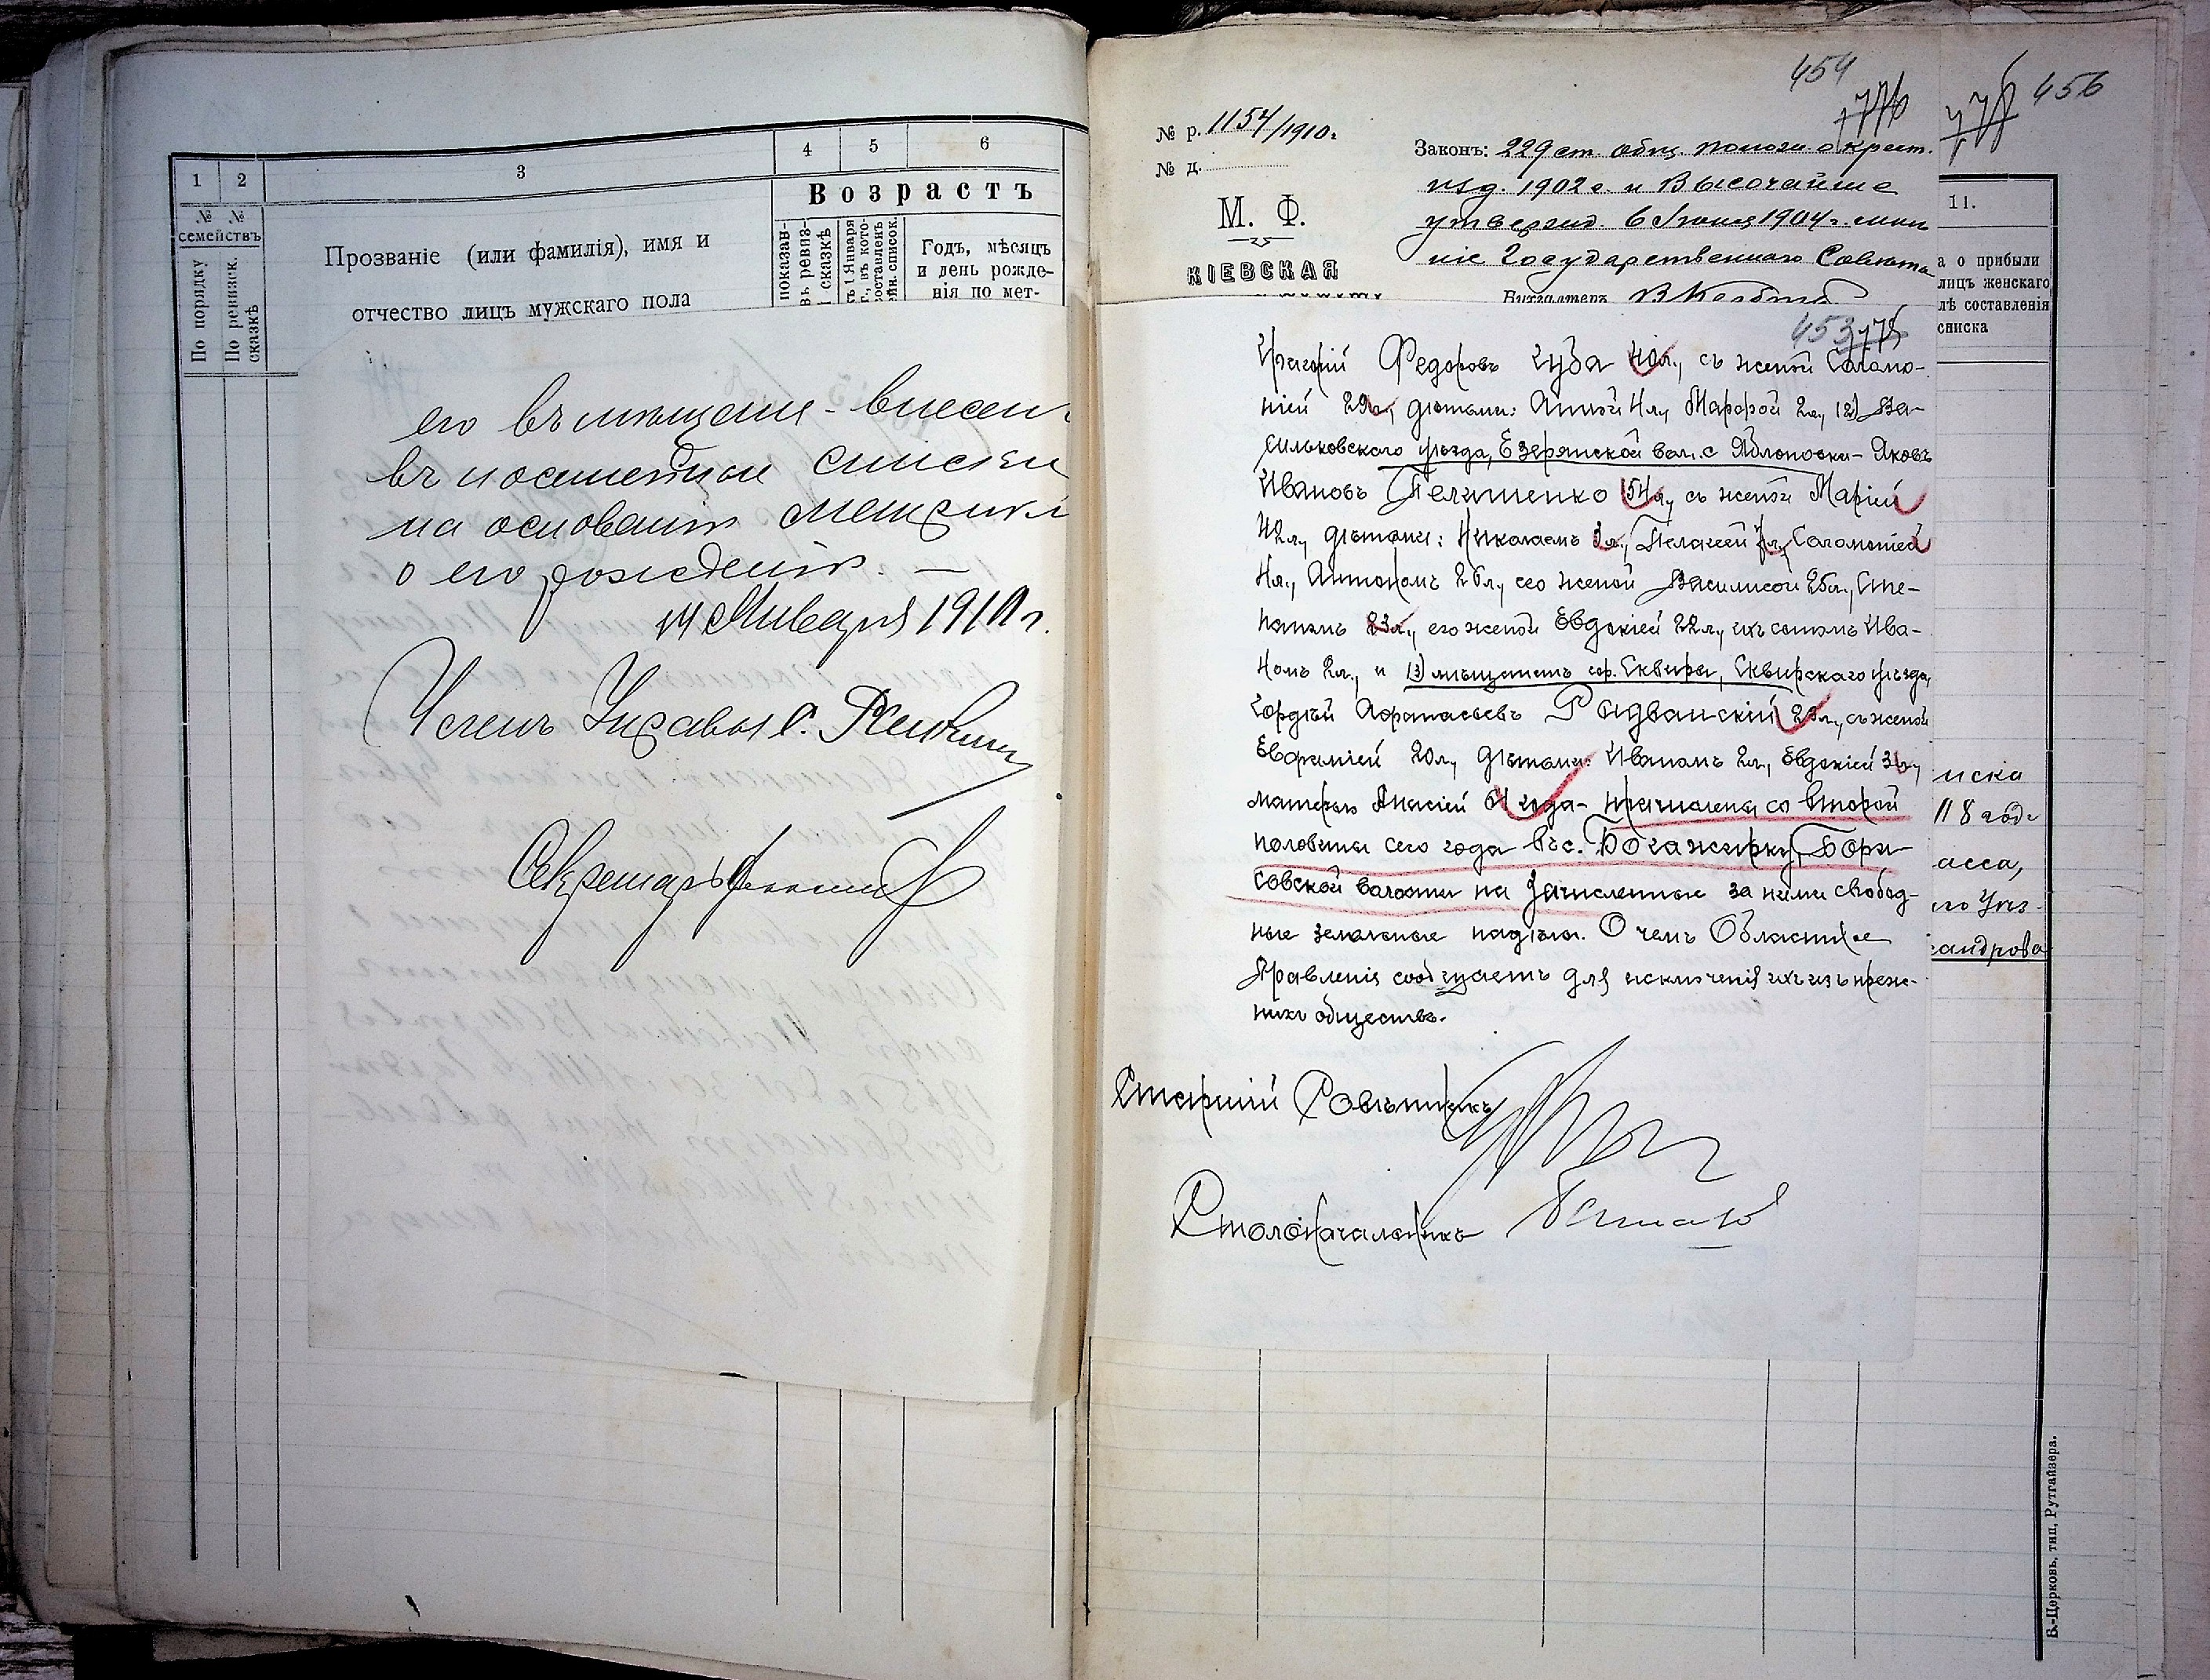 1 2 3 4 5 6
Возрастъ
№ №
семействъ
По порядку
По ревизск.
сказкѣ
Прозваніе (или фамилія), имя и
отчество лицъ мужскаго пола
показан-
въ ревиз-
сказкѣ
1 Января
Годъ, мѣсяцъ
и день рожде-
нія по мет-
его въ мѣщане - внесен
въ посемейные списки
на основаніи метрики
о его рожденіи. —
14 Января 1910 г.
Членъ Управы С.
Секретарь
454
776
456
№ р. 1154/1910 г.
№ д.
М. Ф.
КІЕВСКАЯ
Законъ: 229 ст. общ. полож. о крест.
изд. 1902 г. и Высочайше
утвержд. 6 Іюня 1904 г. мнѣ
ніе Государственнаго Совѣта
Бухгалтеръ
453 775
Григорій Федоровъ Куба 40 л., съ женой Саломо-
ніей 29 л., дѣтьми: Анной 4 л., Марфой 2 л., 12) Ва-
сильковскаго уѣзда, Езерянской вол. с Яблоновки - Яковъ
Ивановъ Пелишенко 54 л., съ женой Маріей
42 л., дѣтьми: Николаемъ л., Пелагеей л., Саломоніей
4 л., Антономъ 26 л., его женой Василисой 25 л., Сте-
паномъ 23 л., его женой Евдокіей 22 л., ихъ сыномъ Ива-
номъ 2 л., и 13) мѣщанинъ гор. Сквиры, Сквирскаго уѣзда,
Гордѣй Афанасьевъ Радванскій л., съ женой
Евфиміей 20 л., дѣтьми: Иваномъ 2 л., Евдокіей 3 л.,
матерью года - причислены со второй
половины сего года въ с. Богажирку, Бори
совской волости на зачисленные за ними свобод-
ные земельные надѣлы. О чемъ Областное
Правленіе сообщаетъ для исключенія ихъ изъ преж-
нихъ обществъ.
Старшій Совѣтникъ
Столоначальникъ
11.
а о прибыли
лицъ женскаго
лѣ составленія
списка
писка
118 годъ
асса,
его Уѣз-
сандрова
Б.-Церковь, тип. Рутгайзера.